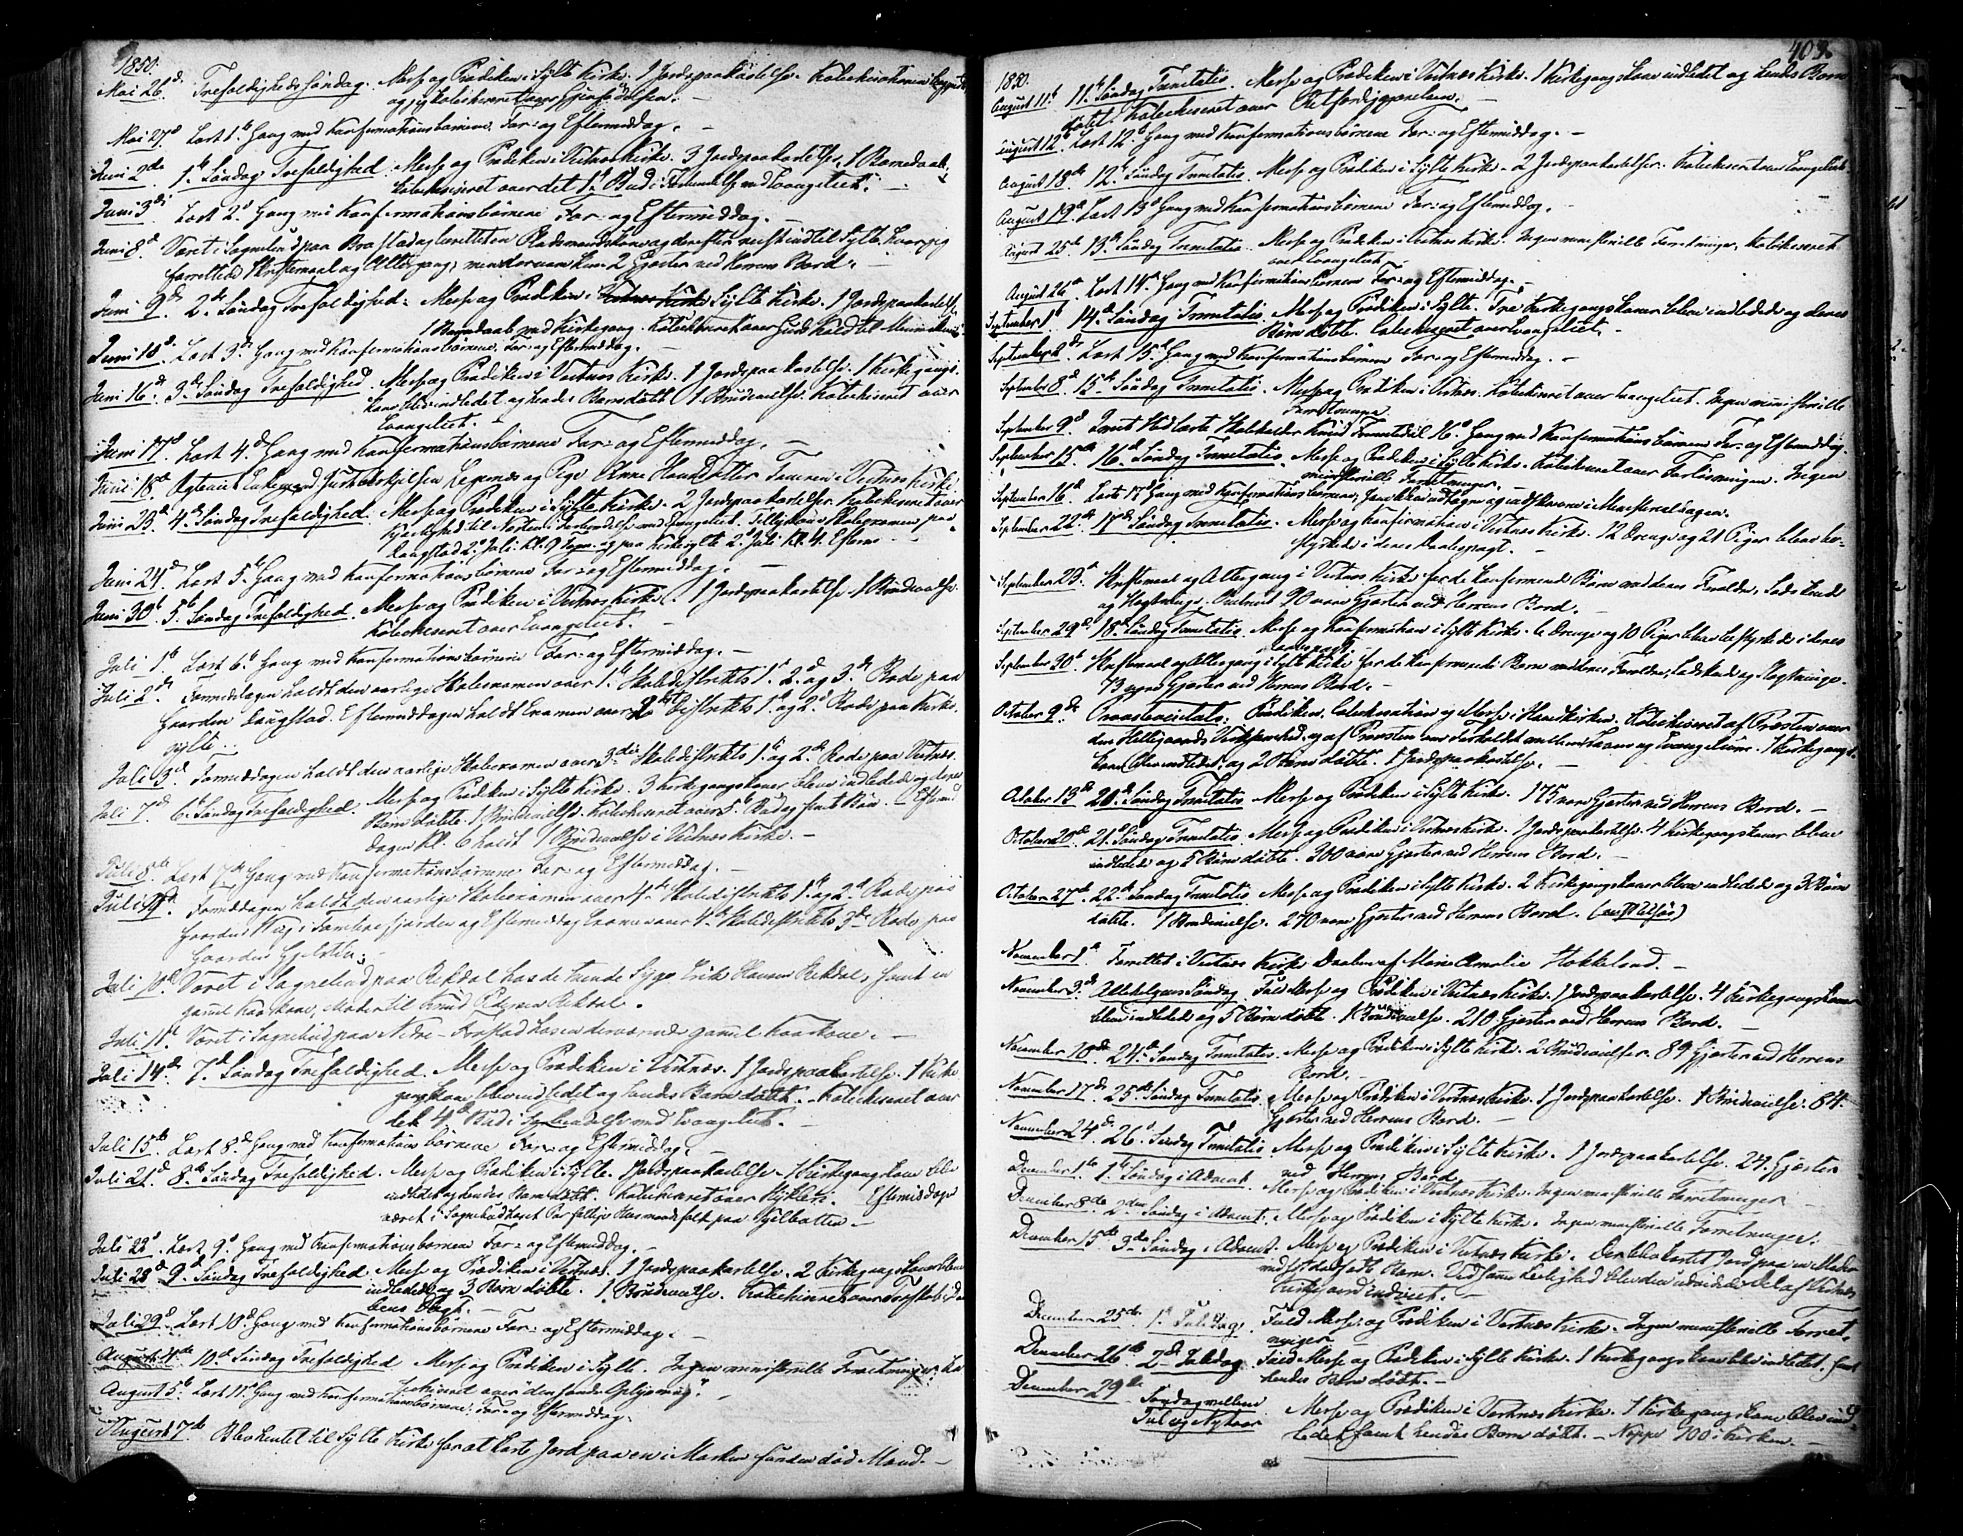 1850.
Mai 26d. Trefoldigheds Søndag. Messe og Prædiken i Sylte Kirke. 1 Jordspaakastelse. Katechisationen
og jeg katechiserede over Gjenfødelsen. –
Mai 27d Læst 1te Gang med Konfirmationsbørnene For- og Eftermiddag. –
Juni 2den 1te Søndag Trefoldighed. Messe og Prædiken i Vestnes Kirke. 3 Jordspaakastelser, 1 Barnedaab,
katechiseret over det 1te Bud i Forbindelse med Evangeliet. –
Juni 3die Læst 2d Gang med Konfirmationsbørnene For- og Eftermiddag. –
Juni 8d Været i Sognebud paa og derefter reist ind til Sylte, hvor jeg
forrettede Skriftemaal og Altergang, men der var kun 2 Gjæster ved Herrens Bord. –
Juni 9de 2de Søndag Trefoldighed. Messe og Prædiken i Sylte Kirke. 1 Jordspaakastelse
1 Barnedaab med Kirkegang. Katechiseret over Guds Kald til Menneskene
Juni 10d Læst 3d Gang med Konfirmationsbørnene For- og Eftermiddag. –
Juni 16d 3de Søndag Trefoldighed. Messe og Prædiken i Vestnes Kirke. 1 Jordspaakastelse. 1 Kirkegangs-
kone blev indledet og hendes Barn døbt. 1 Brudevielse. Katechiseret over
Evangeliet. –
Juni 17d Læst 4d Gang med Konfirmationsbørnene For- og Eftermiddag. –
Juni 18de Ægteviet Enkemand og Pige Anne i Vestnes Kirke
Juni 23d 4de Søndag Trefoldighed. Messe og Prædiken i Sylte Kirke. 2 Jordspaakastelser. Katechiseret over
Kjerlighed til Næsten i Forbindelse med Evangeliet. Tillyst Skoleexamen paa
2d Juli Kl. 9 Form. og paa Kirkesylte 2d Juli Kl. 4 Efterm. –
Juni 24d Læst 5te Gang med Konfirmationsbørnene For- og Eftermiddag. –
Juni 30te 5te Søndag Trefoldighed. Messe og Prædiken i Vestnes Kirke. 1 Jordspaakastelse. 1 Brudevielse.
Katechiseret over Evangeliet. –
Juli 1te Læst 6te Gang med Konfirmationsbørnene For- og Eftermiddag. –
Juli 2den Formiddagen holdt den aarlige Skoleexamen over 1te Skoledistrikts 1te, 2d og 3de Rode paa
Gaarden. Eftermiddagen holdt Examen over Distrikts 1te og 2d Rode paa Kirke-
sylte. –
Juli 3d Formiddagen holdt den aarlige Skoleexamen over 3die Skoledistrikts 1te og 2den Rode paa Vestnes.
Juli 7de 6te Søndag Trefoldighed. Messe og Prædiken i Sylte Kirke. 3 Kirkegangskoner bleve indledede og deres
Børn døbte. 1 Brudevielse. Katechiseret over 5te Bud. Eftermid
dagen Kl. 6 holdt 1 Brudevielse i Vestnes Kirke. –
Juli 8de Læst 7de Gang med Konfirmationsbørnene For- og Eftermiddag. –
Juli 9d Formiddagen holdt den aarlige Skoleexamen over 4de Skoledistrikts 1te og 2d Rode paa
Gaarden i Tomrefjorden og Eftermiddag Examen over 4de Skoledistrikts 3de Rode paa
Gaarden –
Juli 10de Været i Sognebud paa Rekdal hos de tvende Syge Erik Hansen Rekdal, samt en
gammel Kaarkone, Moder til Knud Rekdal. –
Juli 11te Været i Sognebud paa Nedre hos en derværende gammel Kaarkone. –
Juli 14de 7d Søndag Trefoldighed. Messe og Prædiken i Vestnes. 1 Jordspaakastelse. 1 Kirke-
gangskone blev indledet og hendes Barn døbt. Katechiseret over
det 4de Bud i Forbindelse med Evangeliet. –
Juli 15de Læst 8de Gang med Konfirmationsbørnene For- og Eftermiddag. –
Juli 21de 8de Søndag Trefoldighed. Messe og Prædiken i Sylte. 1 Jordspaakastelse. 1 Kirkegangskone blev
indledet og hendes Barn døbt. Katechiseret over Eftermiddagen
været i Sognebud hos et Husmandsfolk paa –
Juli 22d Læst 9d Gang med Konfirmationsbørnene For- og Eftermiddag. –
Juli 28d 9de Søndag Trefoldighed. Messe og Prædiken i Vestnes. 1 Jordspaakastelse. 2 Kirkegangskoner bleve
indledede og 3 Børn døbte. 1 Brudevielse. Katechiseret over
–
Juli 29d Læst 10de Gang med Konfirmationsbørnene For- og Eftermiddag. –
August 4de 10de Søndag Trefoldighed Messe og Prædiken i Sylte. Ingen ministerielle Forretninger. Ka
techiseret over den sande Gudsfrygt. –
August 5te Læst 11te Gang med Konfirmationsbørnene For- og Eftermiddag.
August 7de Blev hentet til Sylte Kirke for at kaste Jord paa en i Marken funden død Mand. –
409.
1850.
August 11te 11te Søndag Trinitatis. Messe og Prædiken i Vestnes Kirke. 1 Kirkegangskone indledet og hendes Barn
døbt. Katechiseret over Retfærdiggjørelsen. –
August 12te Læst 12te Gang med Konfirmationsbørnene For- og Eftermiddag. –
August 18de 12te Søndag Trinitatis. Messe og Prædiken i Sylte Kirke. 2 Jordspaakastelser. Katechiseret over Evangeliet.
August 19de Læst 13d Gang med Konfirmationsbørnene For- og Eftermiddag. –
August 25de 13de Søndag Trinitatis. Messe og Prædiken i Vestnes Kirke. Ingen ministerielle Forretninger. Katechiseret
over Evangeliet. –
August 26de Læst 14de Gang med Konfirmationsbørnene For- og Eftermiddag. –
September 1te 14de Søndag Trinitatis. Messe og Prædiken i Sylte. Tre Kirkegangskoner bleve indledede og deres
Børn døbte. Catechiseret over Evangeliet. –
September 2d Læst 15de Gang med Konfirmationsbørnene For- og Eftermiddag. –
September 8d 15de Søndag Trinitatis. Messe og Prædiken i Vestnes. Katechiseret over Evangeliet. Ingen ministerielle
Forretninger
September 9d Imidlertid læste Skoleholder Knud 16de Gang med Konfirmationsbørnene For- og Eftermiddag.
September 15de 16de Søndag Trinitatis. Messe og Prædiken i Sylte Kirke. Katechiseret over Forløsningen. Ingen
ministerielle Forretninger.
September 16de Læst 17d Gang med Konfirmationsbørnene, som bleve udtagne og indskrevne i Ministerialbogen.
September 22de 17de Søndag Trinitatis. Messe og Konfirmation i Vestnes Kirke. 12 Drenge og 21 Piger bleve be-
styrkede i deres Daabspagt. –
September 23d Skriftemaal og Altergang i Vestnes Kirke for de konfirmerede Børn med deres Forældre, Sødskende
og Slægtninge, hvorved 90 vare Gjæster ved Herrens Bord. –
September 29de 18de Søndag Trinitatis. Messe og Konfirmation i Sylte Kirke. 6 Drenge og 10 Piger bleve bestyrkede i deres
Daabspagt.
September 30te Skriftemaal og Altergang i Sylte Kirke for de konfirmerede Børn med deres Forældre, Sødskende og Slægtninge.
73 vare Gjæster ved Herrens Bord. –
October 9de Provstevisitats. Prædiken, Catechisation og Messe i Hovedkirken. Katechiseret af Præsten over
den Helligaands Virksomhed, og af Provsten over Forholdet mellem Loven og Evangelium. 1 Kirkegangs-
kone blev indledet og 2 Børn døbte. 1 Jordspaakastelse. –
October 13de 20de Søndag Trinitatis Messe og Prædiken i Sylte Kirke. 175 vare Gjæster ved Herrens Bord. –
October 20de 21de Søndag Trinitatis. Messe og Prædiken i Vestnes Kirke. 1 Jordspaakastelse. 4 Kirkegangskoner bleve
indledede og 5 Børn døbte. 300 vare Gjæster ved Herrens Bord. –
October 27de 22de Søndag Trinitatis. Messe og Prædiken i Sylte Kirke. 2 Kirkegangskoner bleve indledede og 3 Børn
døbte. 1 Brudevielse. 270 vare Gjæster ved Herrens Bord.
November 1te Forrettet i Vestnes Kirke Daaben af Marie Amalie Hokkeland. –
November 3de Allehelgens Søndag. Fuld Messe og Prædiken i Vestnes Kirke. 1 Jordspaakastelse. 4 Kirkegangskoner
bleve indledede og 5 Børn døbte. 1 Brudevielse. 210 Gjæster ved Herrens Bord. –
November 10de 24de Søndag Trinitatis. Messe og Prædiken i Sylte Kirke. 2 Brudevielser. 89 Gjæster ved Herrens
Bord. –
November 17de 25de Søndag Trinitatis. Messe og Prædiken i Vestnes Kirke. 1 Jordspaakastelse. 1 Brudevielse. 84.
Gjæster ved Herrens Bord. –
November 24de 26te Søndag Trinitatis Messe og Prædiken i Sylte Kirke. 1 Jordspaakastelse. 24 Gjæster
ved Herrens Bord.
December 1te 1te Søndag i Advent. Messe og Prædiken i Vestnes Kirke. Ingen ministerielle Forretninger.
December 8de 2den Søndag i Advent. Messe og Prædiken i Sylte Kirke. Ingen ministerielle Forretninger.
December 15de 3de Søndag i Advent. Messe og Prædiken i Vestnes Kirke. Der blev kastet Jord paa en Moder
med sit dødfødte Barn. Ved samme Leilighed blev den udvidede Del af Vestnes
Kirkegaard indviet. –
December 25de 1te Juledag. Fuld Messe og Prædiken i Vestnes Kirke. Ingen ministerielle Forret-
ninger.
December 26de 2d Juledag Fuld Messe og Prædiken i Sylte Kirke. 1 Kirkegangskone blev indledet, samt
hendes Barn døbt. –
December 29de Søndag mellem Jul og Nytaar Messe og Prædiken i Vestnes Kirke. 1 Kirkegangskone blev ind-
ledet samt hendes Barn døbt. – Neppe 100 i Kirken. –